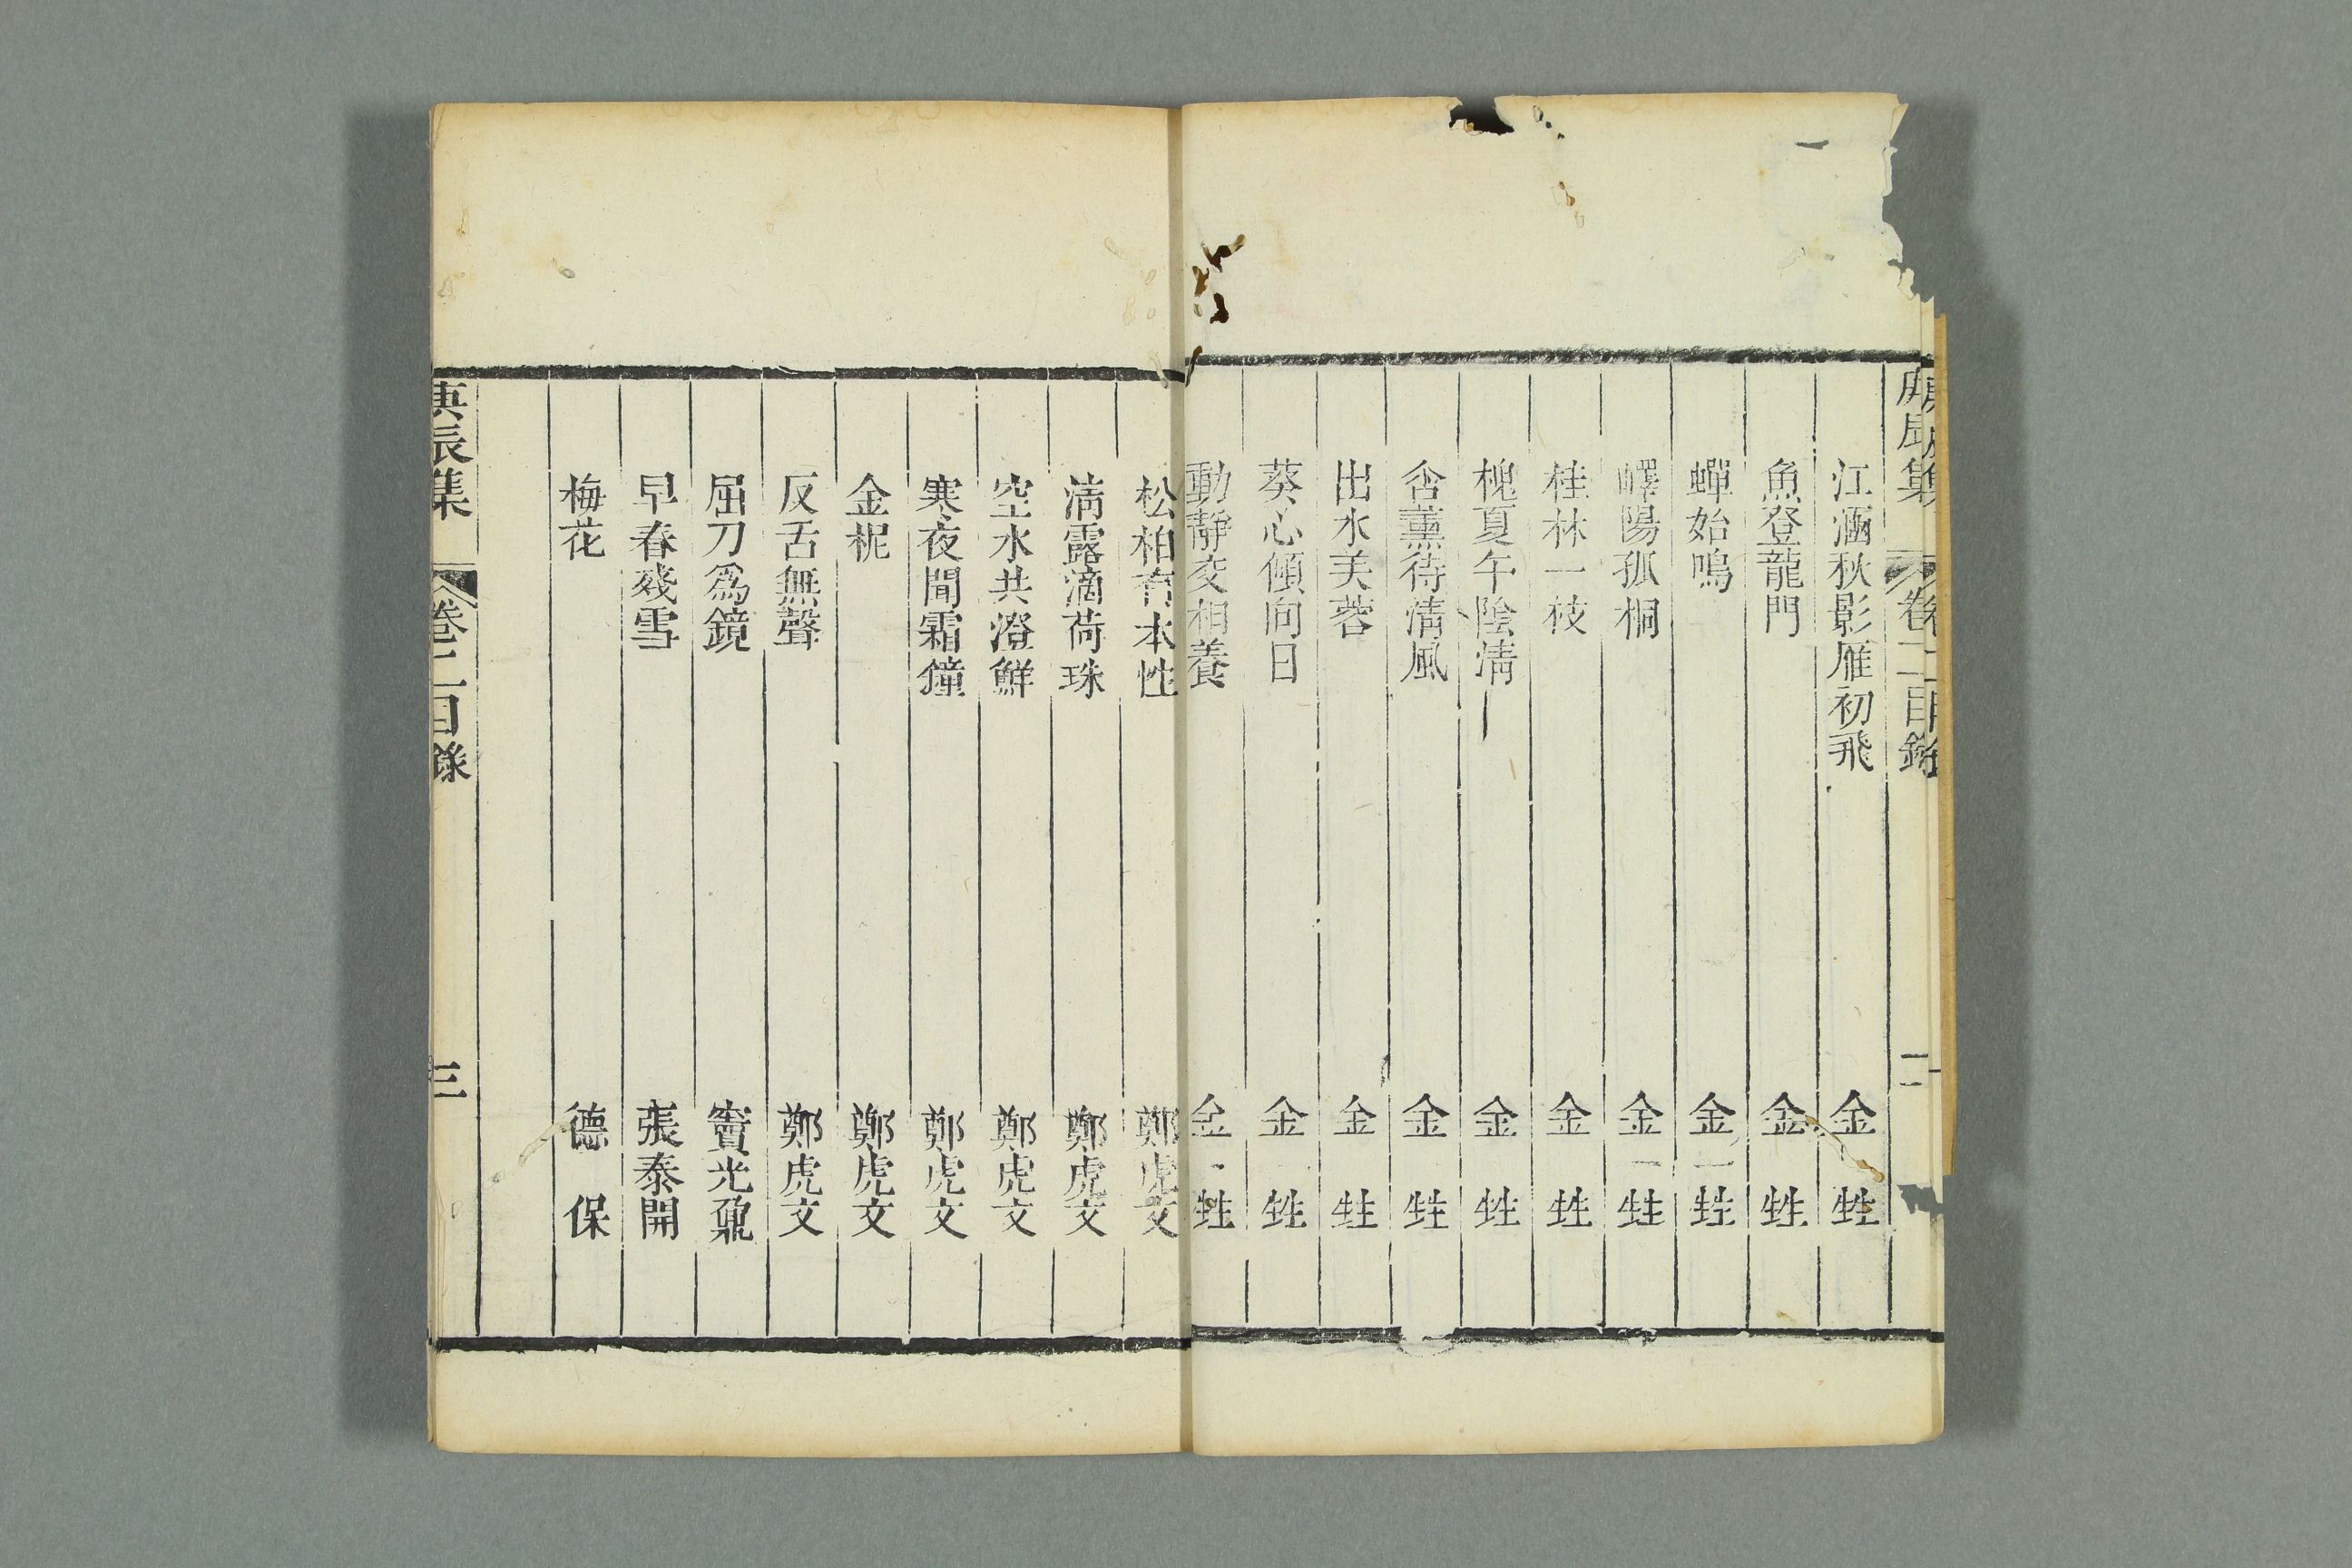 庚辰集 卷二目錄 二
江涵秋影雁初飛 金甡
魚登龍門 金甡
蟬始鳴 金甡
嶧陽孤桐 金甡
桂林一枝 金甡
槐夏午陰淸 金甡
含薰待淸風 金甡
出水芙蓉 金甡
葵心傾向日 金甡
動靜交相養 金甡
松柏有本性 鄭虎文
淸露滴荷珠 鄭虎文
空水共澄鮮 鄭虎文
寒夜聞霜鐘 鄭虎文
金柅 鄭虎文
反舌無聲 鄭虎文
屈刀爲鏡 竇光鼐
早春殘雪 張泰開
梅花 德保
庚辰集 卷二目錄 三